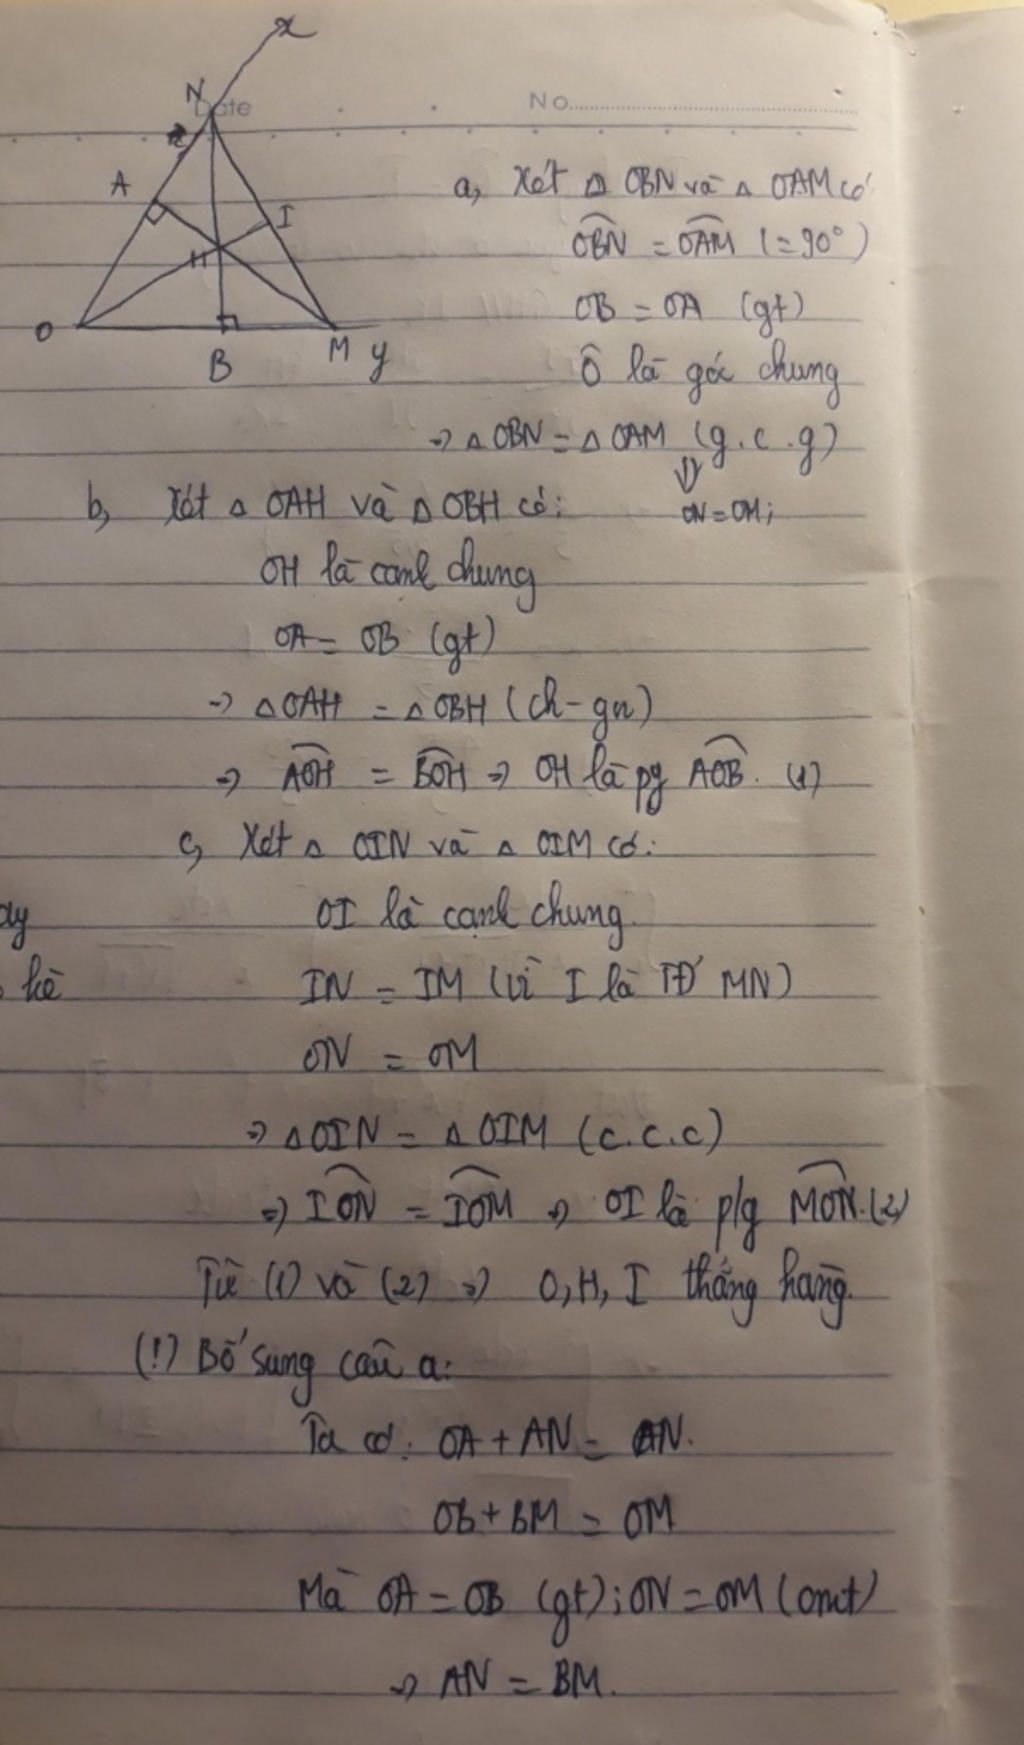 x
N
Date
No
A
I
H
O
B
M
y
a, Xét △ OBN và △ OAM có
OBN = OAM (=90°)
OB = OA (gt)
Ô là góc chung
⇒ △OBN = △OAM (g.c.g)
⇓
ON = OM;
b, Xét △ OAH và △OBH có:
OH là cạnh chung
OA = OB (gt)
⇒ △OAH = △OBH (ch-gn)
⇒ AOH = BOH ⇒ OH là pg AOB. (1)
c, Xét △ OIN và △ OIM có:
OI là cạnh chung.
dy
IN = IM (vì I là TĐ MN)
kẻ
ON = OM
⇒ △OIN = △OIM (c.c.c)
⇒ ION = IOM ⇒ OI là p/g MON. (2)
Từ (1) và (2) ⇒ O, H, I thẳng hàng.
(!) Bổ sung câu a:
Ta có: OA + AN = ON.
OB + BM = OM
Mà OA = OB (gt); ON = OM (cmt)
⇒ AN = BM.